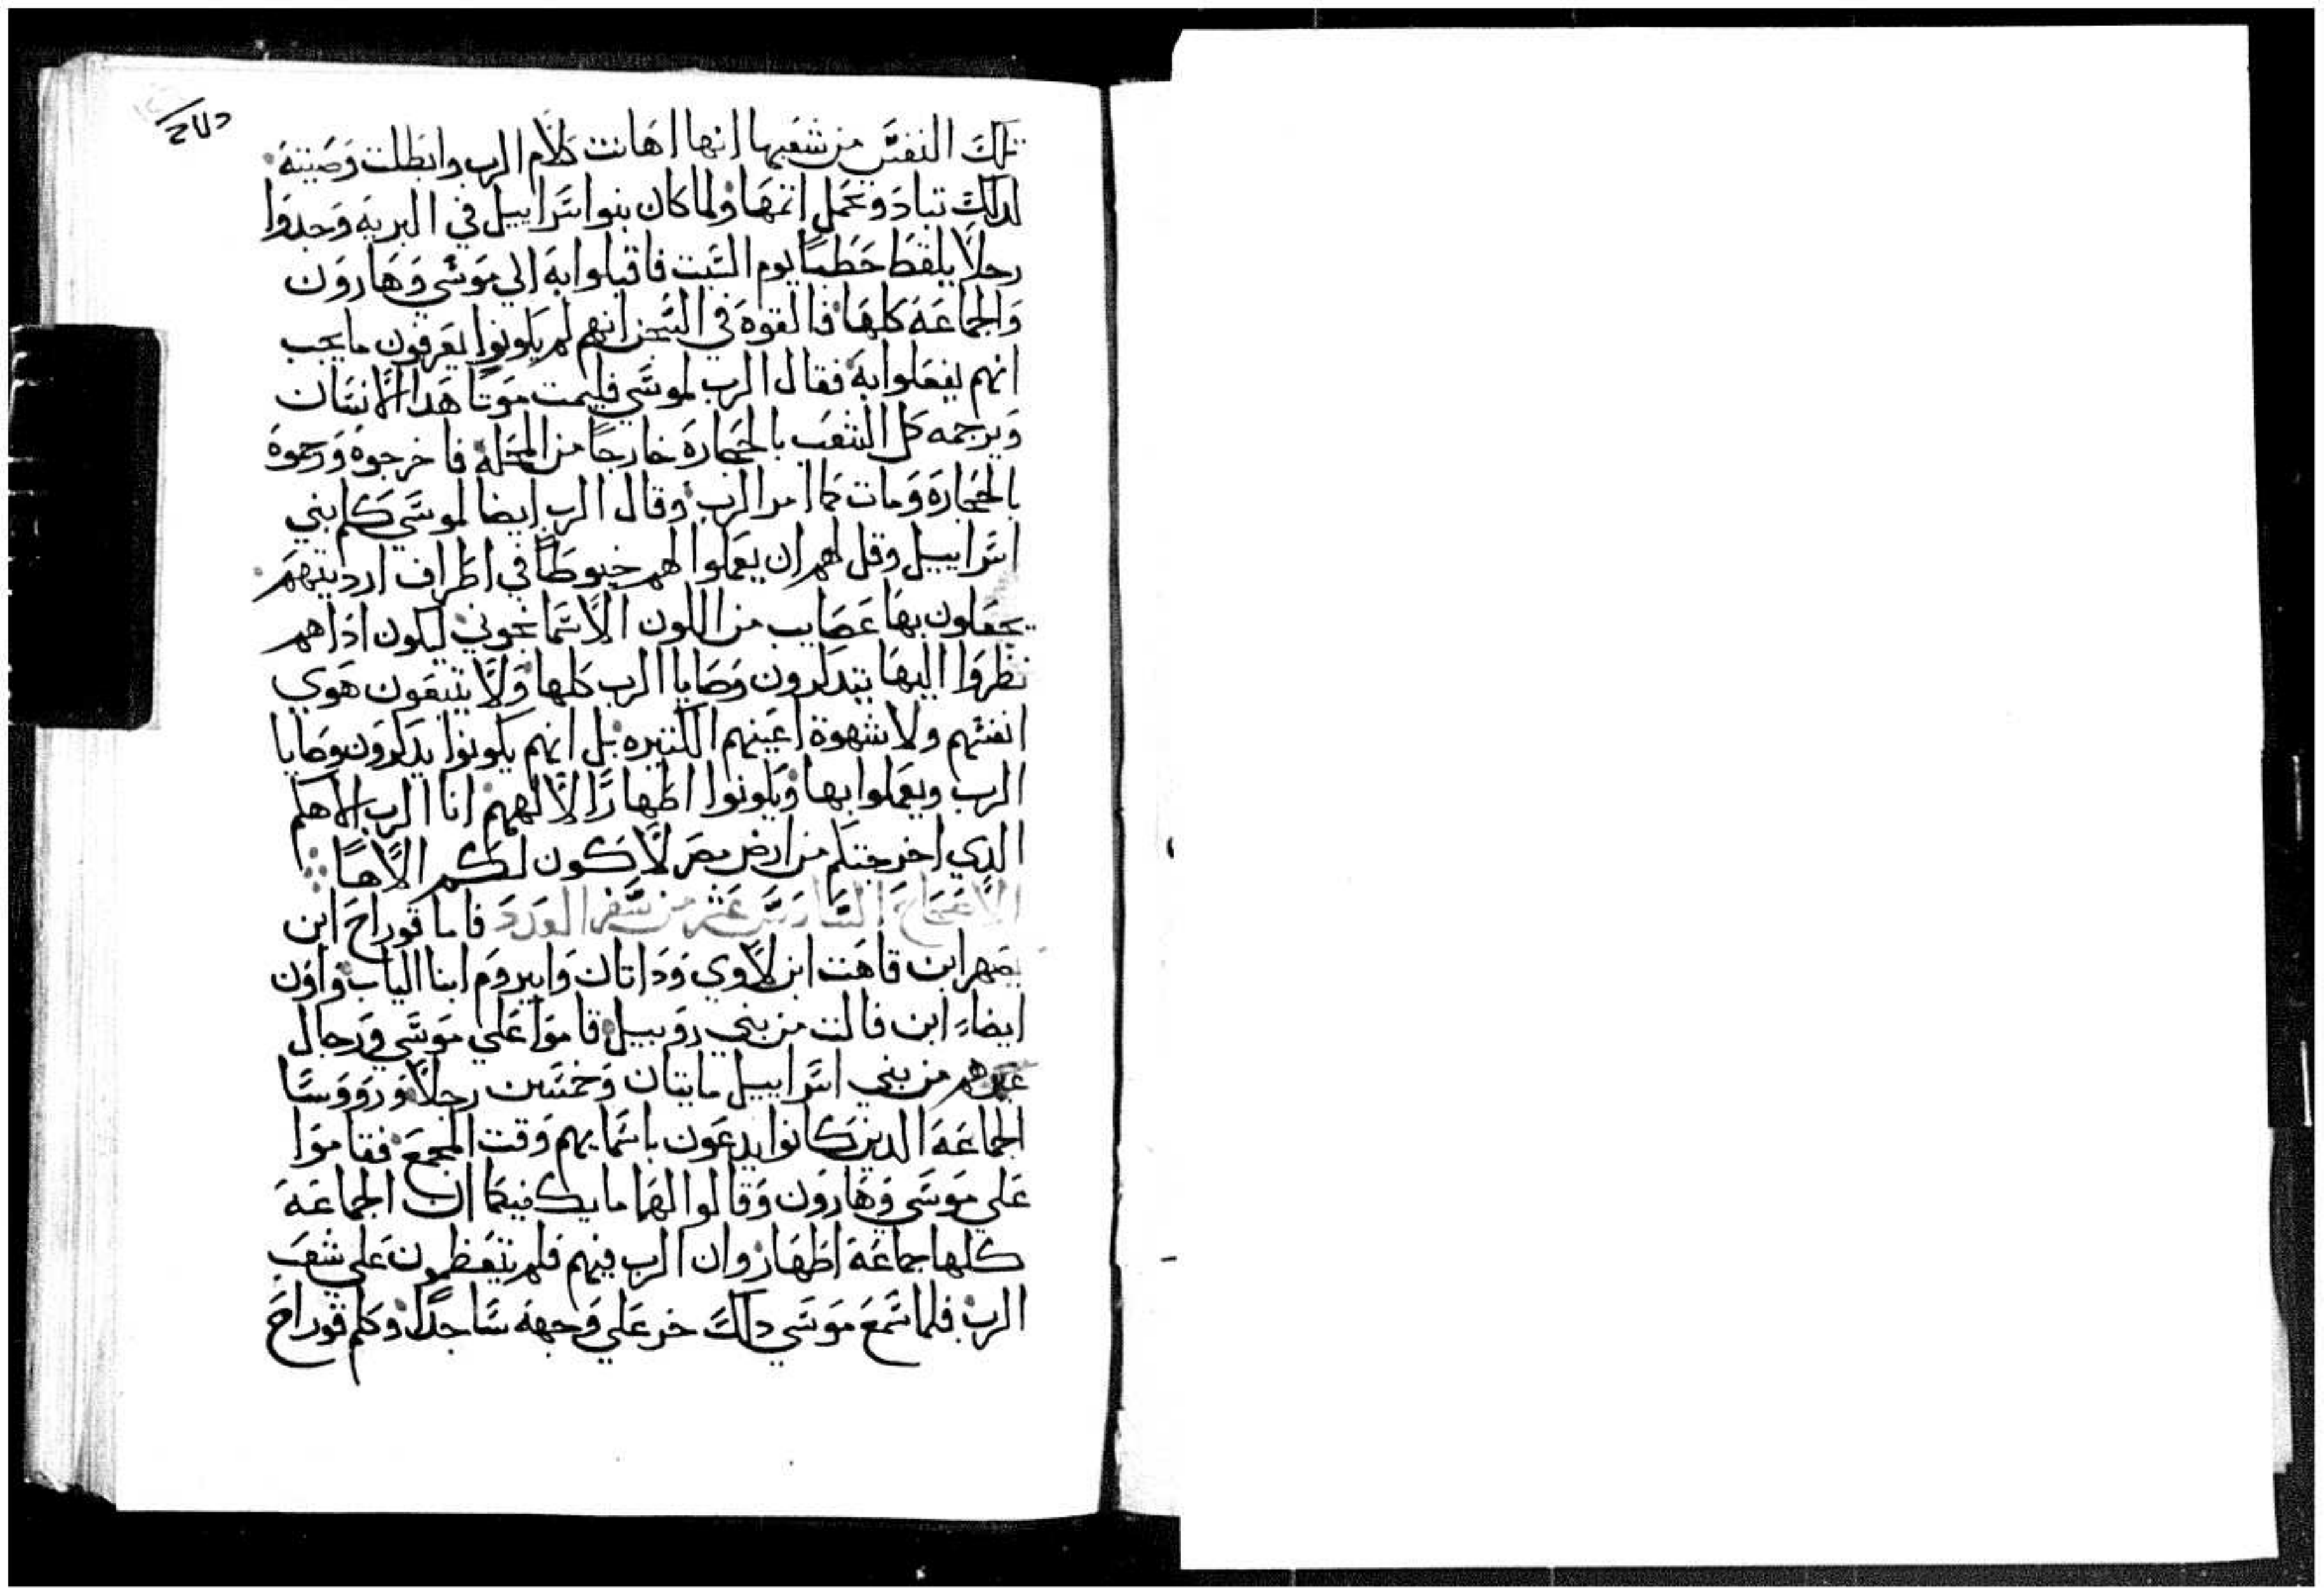 تلك النفس من شعبها انها اهانت كلام الرب وابطلت وصيته
لدلك تباد وتحمل اتمها ولما كان بنوا اسراييل في البريه وجدوا
رجلا يلقط حطبا يوم السبت فاقبلوا به الي موسي وهارون
والجماعه كلها فالقوه في السجن انهم لم يكونوا يعرفون ما يجب
انهم يفعلوا به فقال الرب لموسي فليمت موتا هدا الانسان
ويرجمه كل الشعب بالحجاره خارجا من المحله فاخرجوه ورجموه
بالحجاره ومات كما امر الرب وقال الرب ايضا لموسي كلم بني
اسراييل وقل لهم ان يعملوا لهم خيوطا في اطراف ارديتهم
يجعلون بها عصايب من اللون الاسمانجوني ليكون ادا هم
نظروا اليها يتدكرون وصايا الرب كلها ولا يتبعون هوي
انفسهم ولا شهوة اعينهم الكتيره بل انهم يكونوا يدكرون وصايا
الرب ويعملوا بها ويكونوا اطهارا لالههم انا الرب الاهكم
الدي اخرجتكم من ارض مصر لاكون لكم الاها
الاصحاح السادس عشر من سفر العدد فاما قوراح ابن
يصهر ابن قاهت ابن لاوي وداتان وابيروم ابنا الياب واون
ايضا ابن فالت من بني روبيل قاموا علي موسي ورجال
غيرهم من بني اسراييل مايتان وخمسين رجلا ورووسا
الجماعه الدين كانوا يدعون باسمايهم وقت المجمع فقاموا
علي موسي وهارون وقالوا لهما ما يكفيكما ان الجماعه
كلها جماعه اطهار وان الرب فيهم فلم تتعظمون علي شعب
الرب فلما سمع موسي دلك خر علي وجهه ساجدا وكلم قوراح